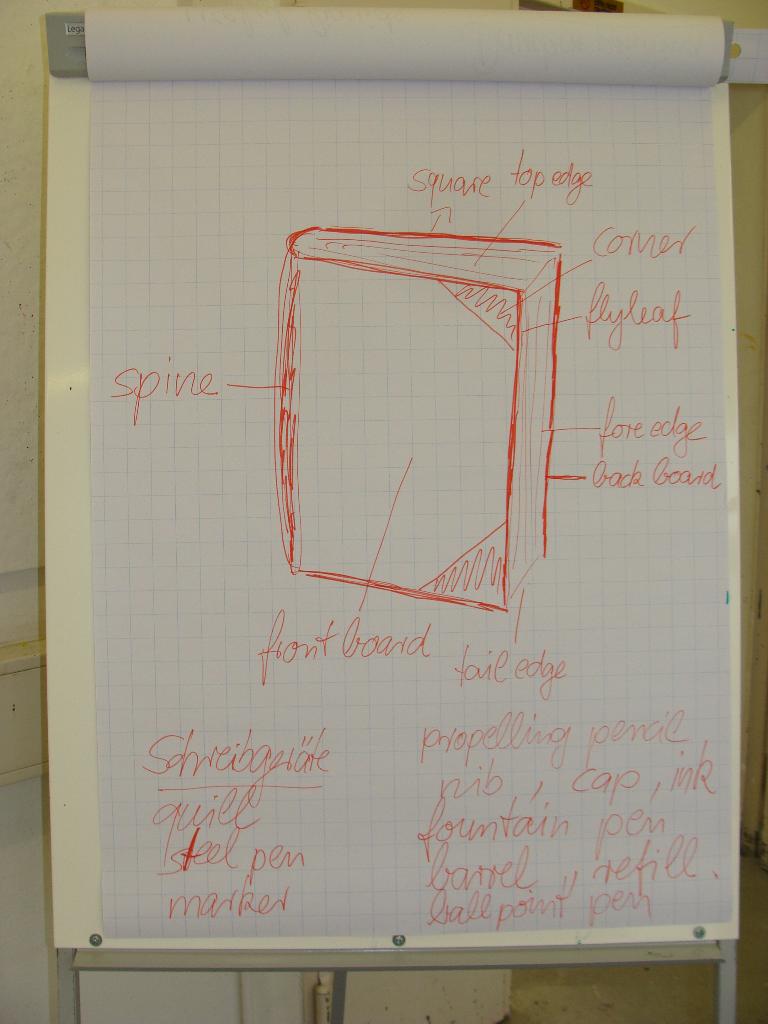 Lega
square top edge
corner
flyleaf
spine
fore edge
back board
front board
tail edge
Schreibgeräte
quill
steel pen
marker
propelling pencil,
nib, cap, ink
fountain pen
barrel, refill.
ballpoint pen